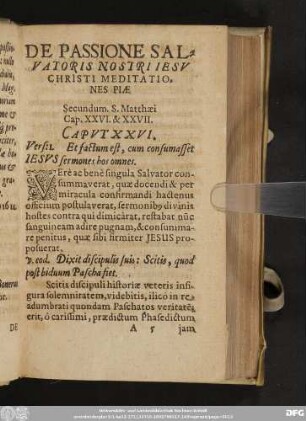 DE PASSIONE SAL-
VATORIS NOSTRI IESV
CHRISTI MEDITATIO,
NES PIÆ
Secundum. S. Matthæi
Cap. XXVI. & XXVII.
CAPVT XXVI.
Vers: 1. Et factum est, cum consumasset
IESVS sermones hos omnes.
VEre ac bene singula Salvator con-
summaverat, quæ docendi & per
miracula confirmandi hactenus
officium postulaverat, sermonibus divinis
hostes contra qui dimicârat, restabat nūc
sanguineam adire pugnam, & consumma-
re penitus, quæ sibi firmiter JESUS pro-
posuerat.
v. eod. Dixit discipulis suis: Scitis, quod
post biduum Pascha fiet.
Scitis discipuli historiæ veteris insi-
gura solemnitatem, videbitis, ilico in re
adumbrati quondam Paschatos veritatē
erit, ô carissimi, prædictum Phasedictum
A 5 jam
DE